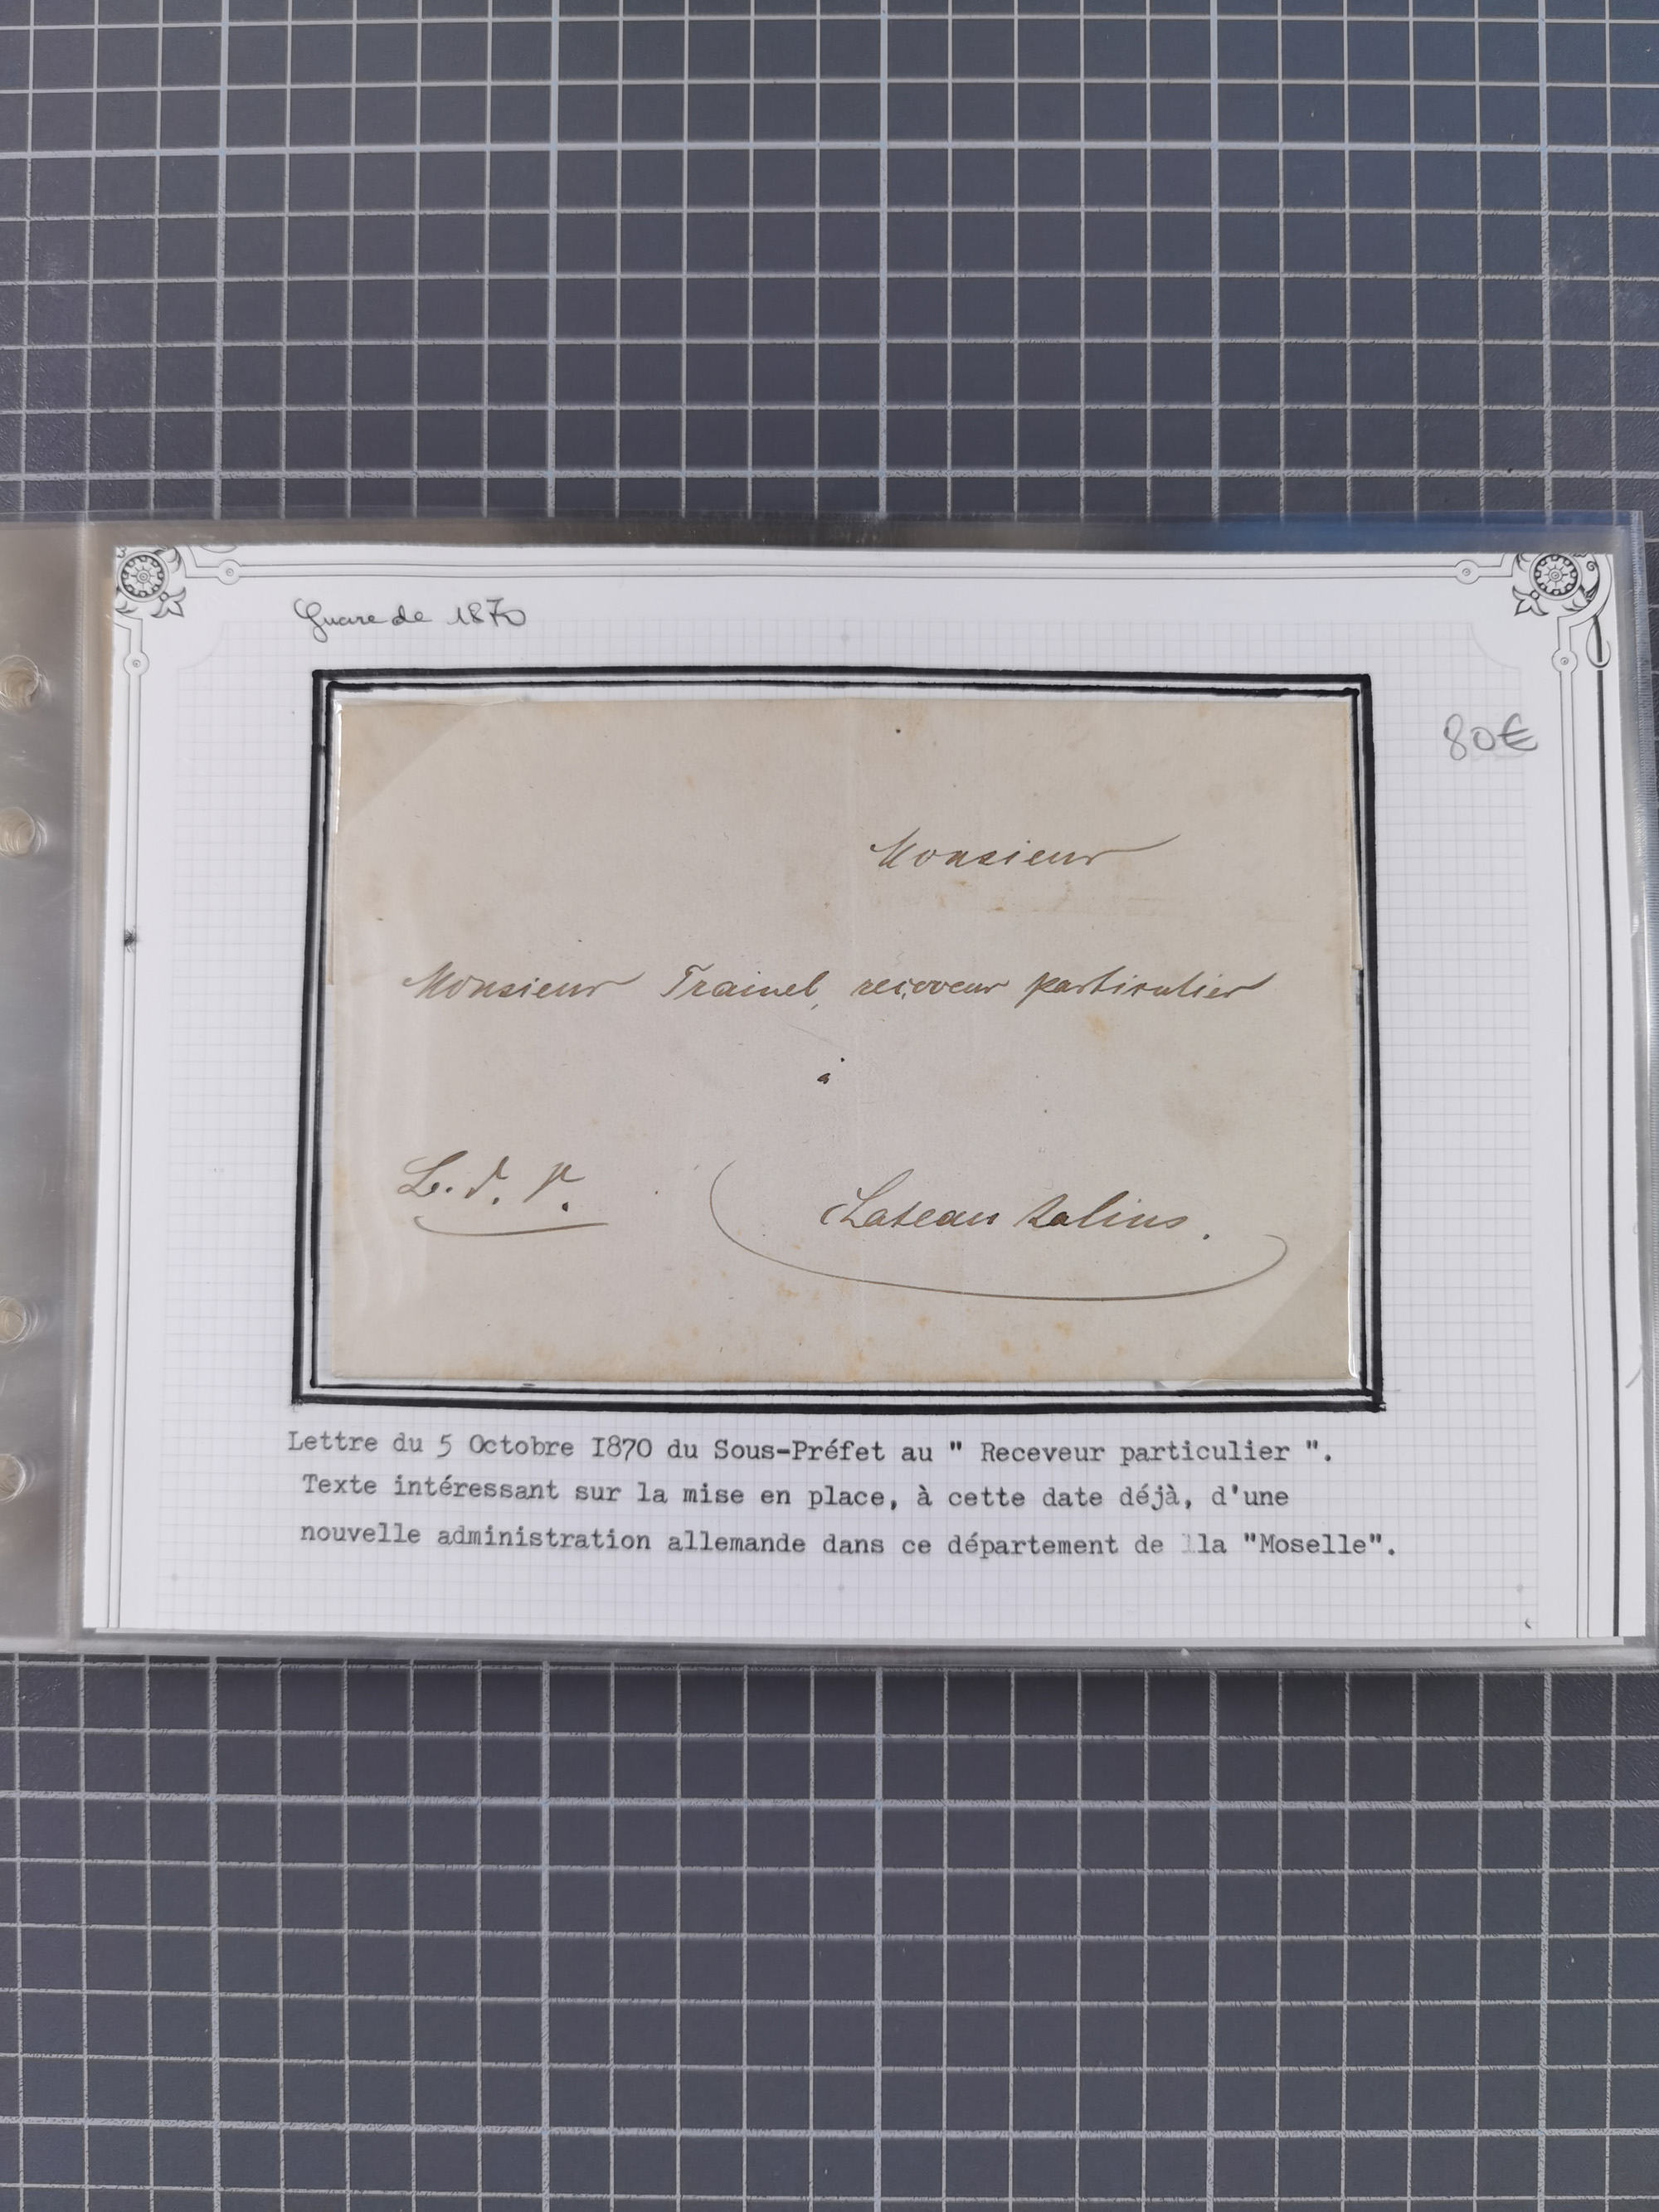 Guerre de 1870
80€
Monsieur
Monsieur Trainel, receveur particulier
à
Chateau Salins.
Lettre du 5 Octobre I870 du Sous-Préfet au " Receveur particulier ".
Texte intéressant sur la mise en place, à cette date déjà, d'une
nouvelle administration allemande dans ce département de la "Moselle".